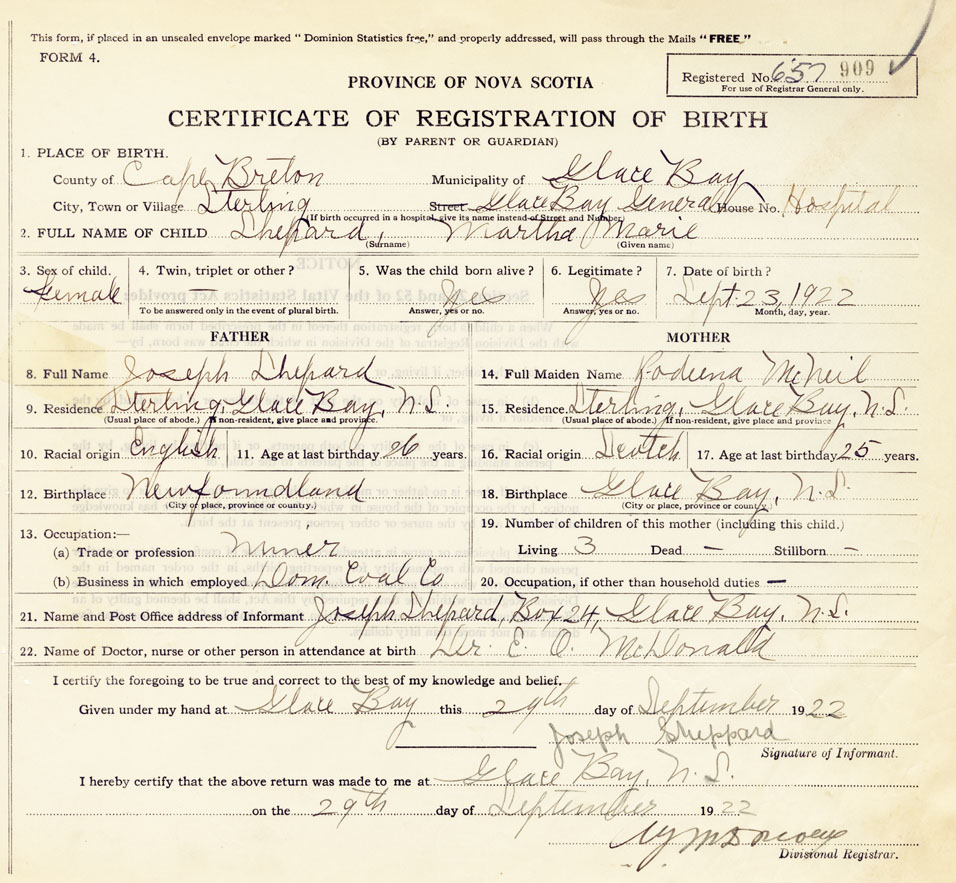 This form, if placed in an unsealed envelope marked "Dominion Statistics free," and properly addressed, will pass through the Mails "FREE."
FORM 4.
Registered No. 657 909
For use of Registrar General only.
PROVINCE OF NOVA SCOTIA
CERTIFICATE OF REGISTRATION OF BIRTH
(BY PARENT OR GUARDIAN)
1. PLACE OF BIRTH.
County of Cape Breton Municipality of Glace Bay
City, Town or Village Sterling Street Glace Bay General House No. Hospital
(If birth occurred in a hospital, give its name instead of Street and Number)
2. FULL NAME OF CHILD Shepard, Martha Marie
(Surname) (Given name)
3. Sex of child. 4. Twin, triplet or other? 5. Was the child born alive? 6. Legitimate? 7. Date of birth?
Female — Yes Yes Sept. 23, 1922
To be answered only in the event of plural birth. Answer, yes or no. Answer, yes or no. Month, day, year.
FATHER MOTHER
8. Full Name Joseph Shepard 14. Full Maiden Name Rodeena McNeil
9. Residence Sterling, Glace Bay, N.S. 15. Residence Sterling, Glace Bay, N.S.
(Usual place of abode.) If non-resident, give place and province. (Usual place of abode.) If non-resident, give place and province
10. Racial origin English 11. Age at last birthday 26 years. 16. Racial origin Scotch 17. Age at last birthday 25 years.
12. Birthplace Newfoundland 18. Birthplace Glace Bay, N.S.
(City or place, province or country.) (City or place, province or country.)
13. Occupation:— 19. Number of children of this mother (including this child.)
(a) Trade or profession Miner Living 3 Dead — Stillborn —
(b) Business in which employed Dom. Coal Co 20. Occupation, if other than household duties —
21. Name and Post Office address of Informant Joseph Shepard, Box 24, Glace Bay, N.S.
22. Name of Doctor, nurse or other person in attendance at birth Dr. E. O. McDonald
I certify the foregoing to be true and correct to the best of my knowledge and belief.
Given under my hand at Glace Bay this 29th day of September 1922
Joseph Sheppard
Signature of Informant.
I hereby certify that the above return was made to me at Glace Bay, N.S.
on the 29th day of September 1922
Divisional Registrar.